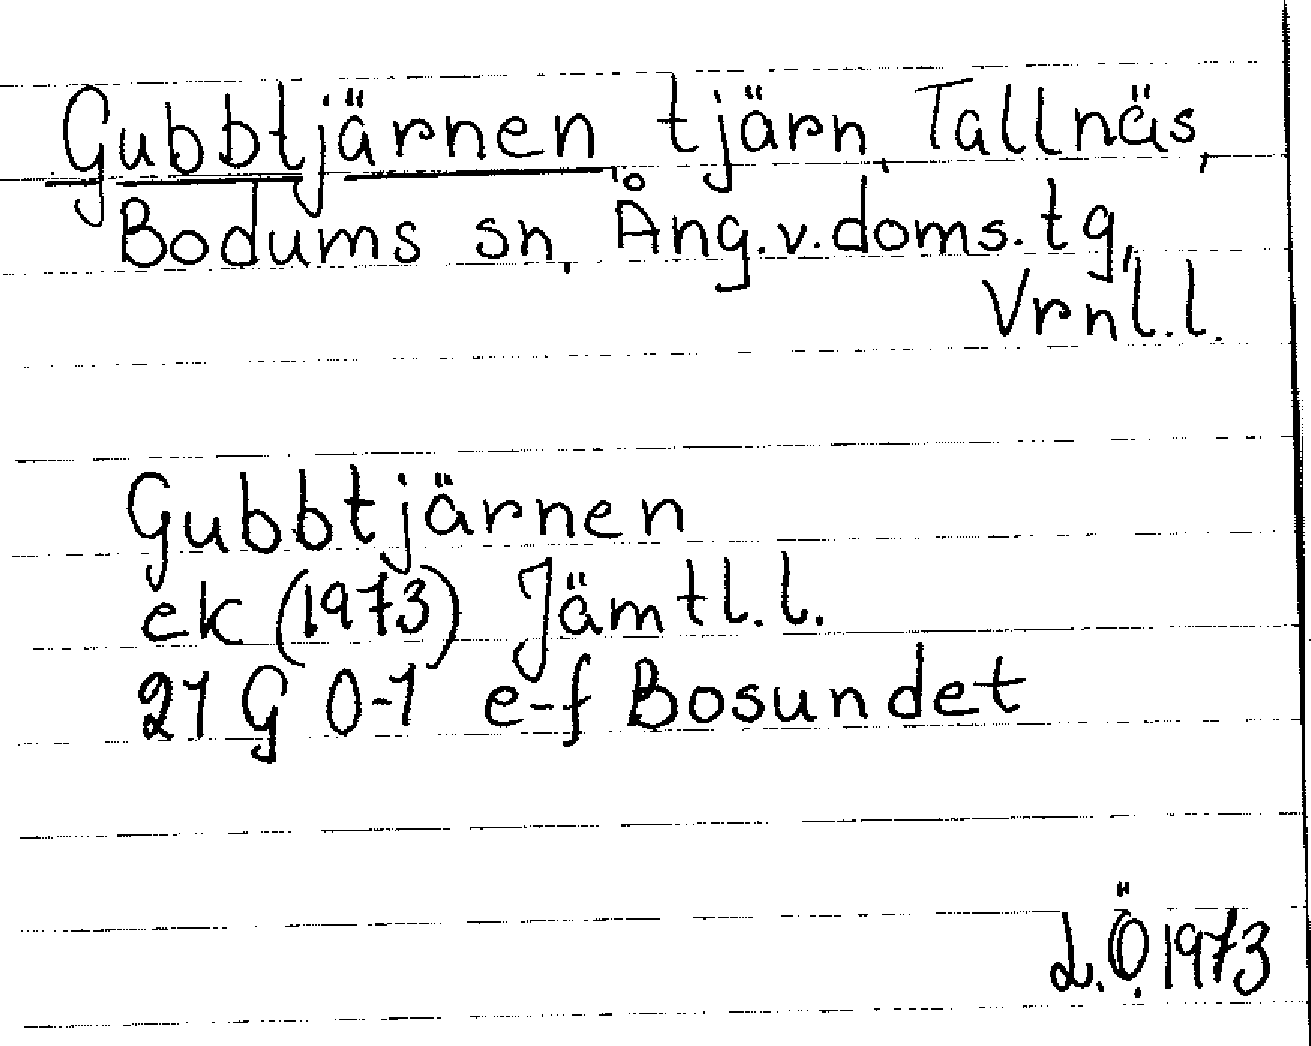 Gubbtjärnen, tjärn, Tallnäs,
Bodums sn, Ång.v.doms.tg,
Vrnl.l.
Gubbtjärnen
ek (1973) Jämtl.l.
21 G 0-1 e-f Bosundet
L.Ö. 1973